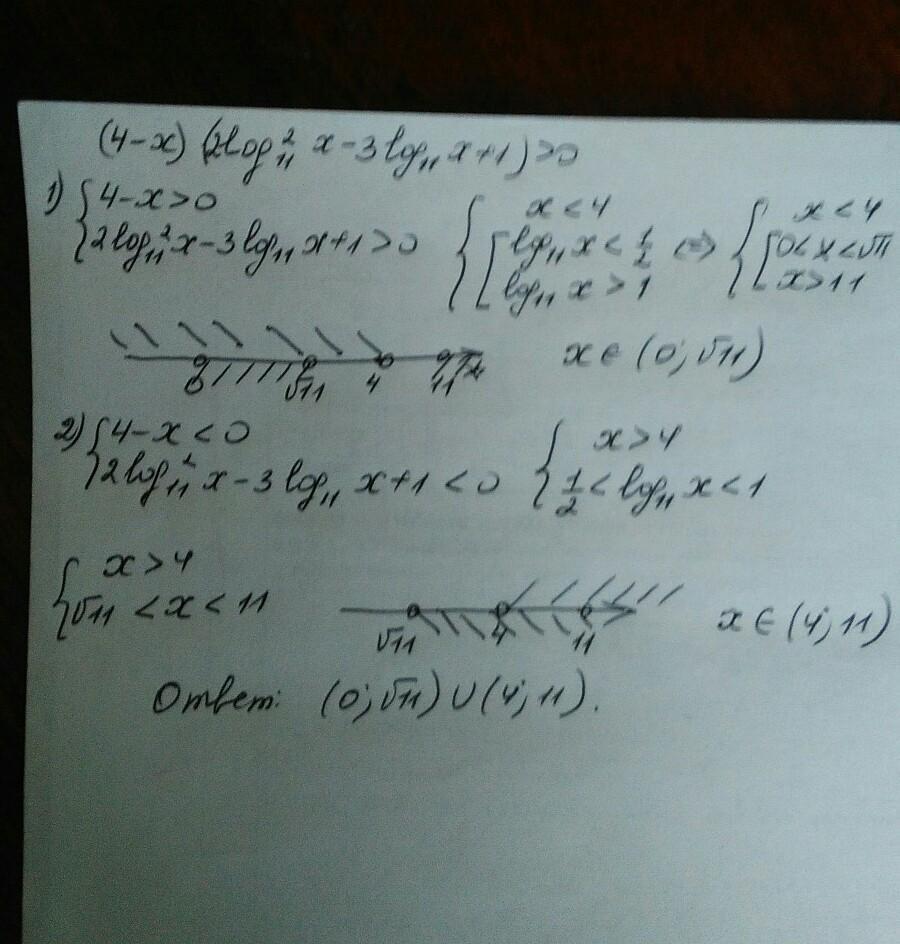 (4-x)(2log²₁₁ x-3log₁₁ x+1)>0
1) {4-x>0 { x<4 { x<4
{2log²₁₁x-3log₁₁x+1>0 [log₁₁x<1/2 ⇔ [0<x<√11
[log₁₁x>1 [x>11
0 √11 4 11 x x∈(0;√11)
2) {4-x<0 { x>4
{2log²₁₁x-3log₁₁x+1<0 {1/2<log₁₁x<1
{ x>4
{√11<x<11 √11 4 11 x∈(4;11)
Ответ: (0;√11)∪(4;11).